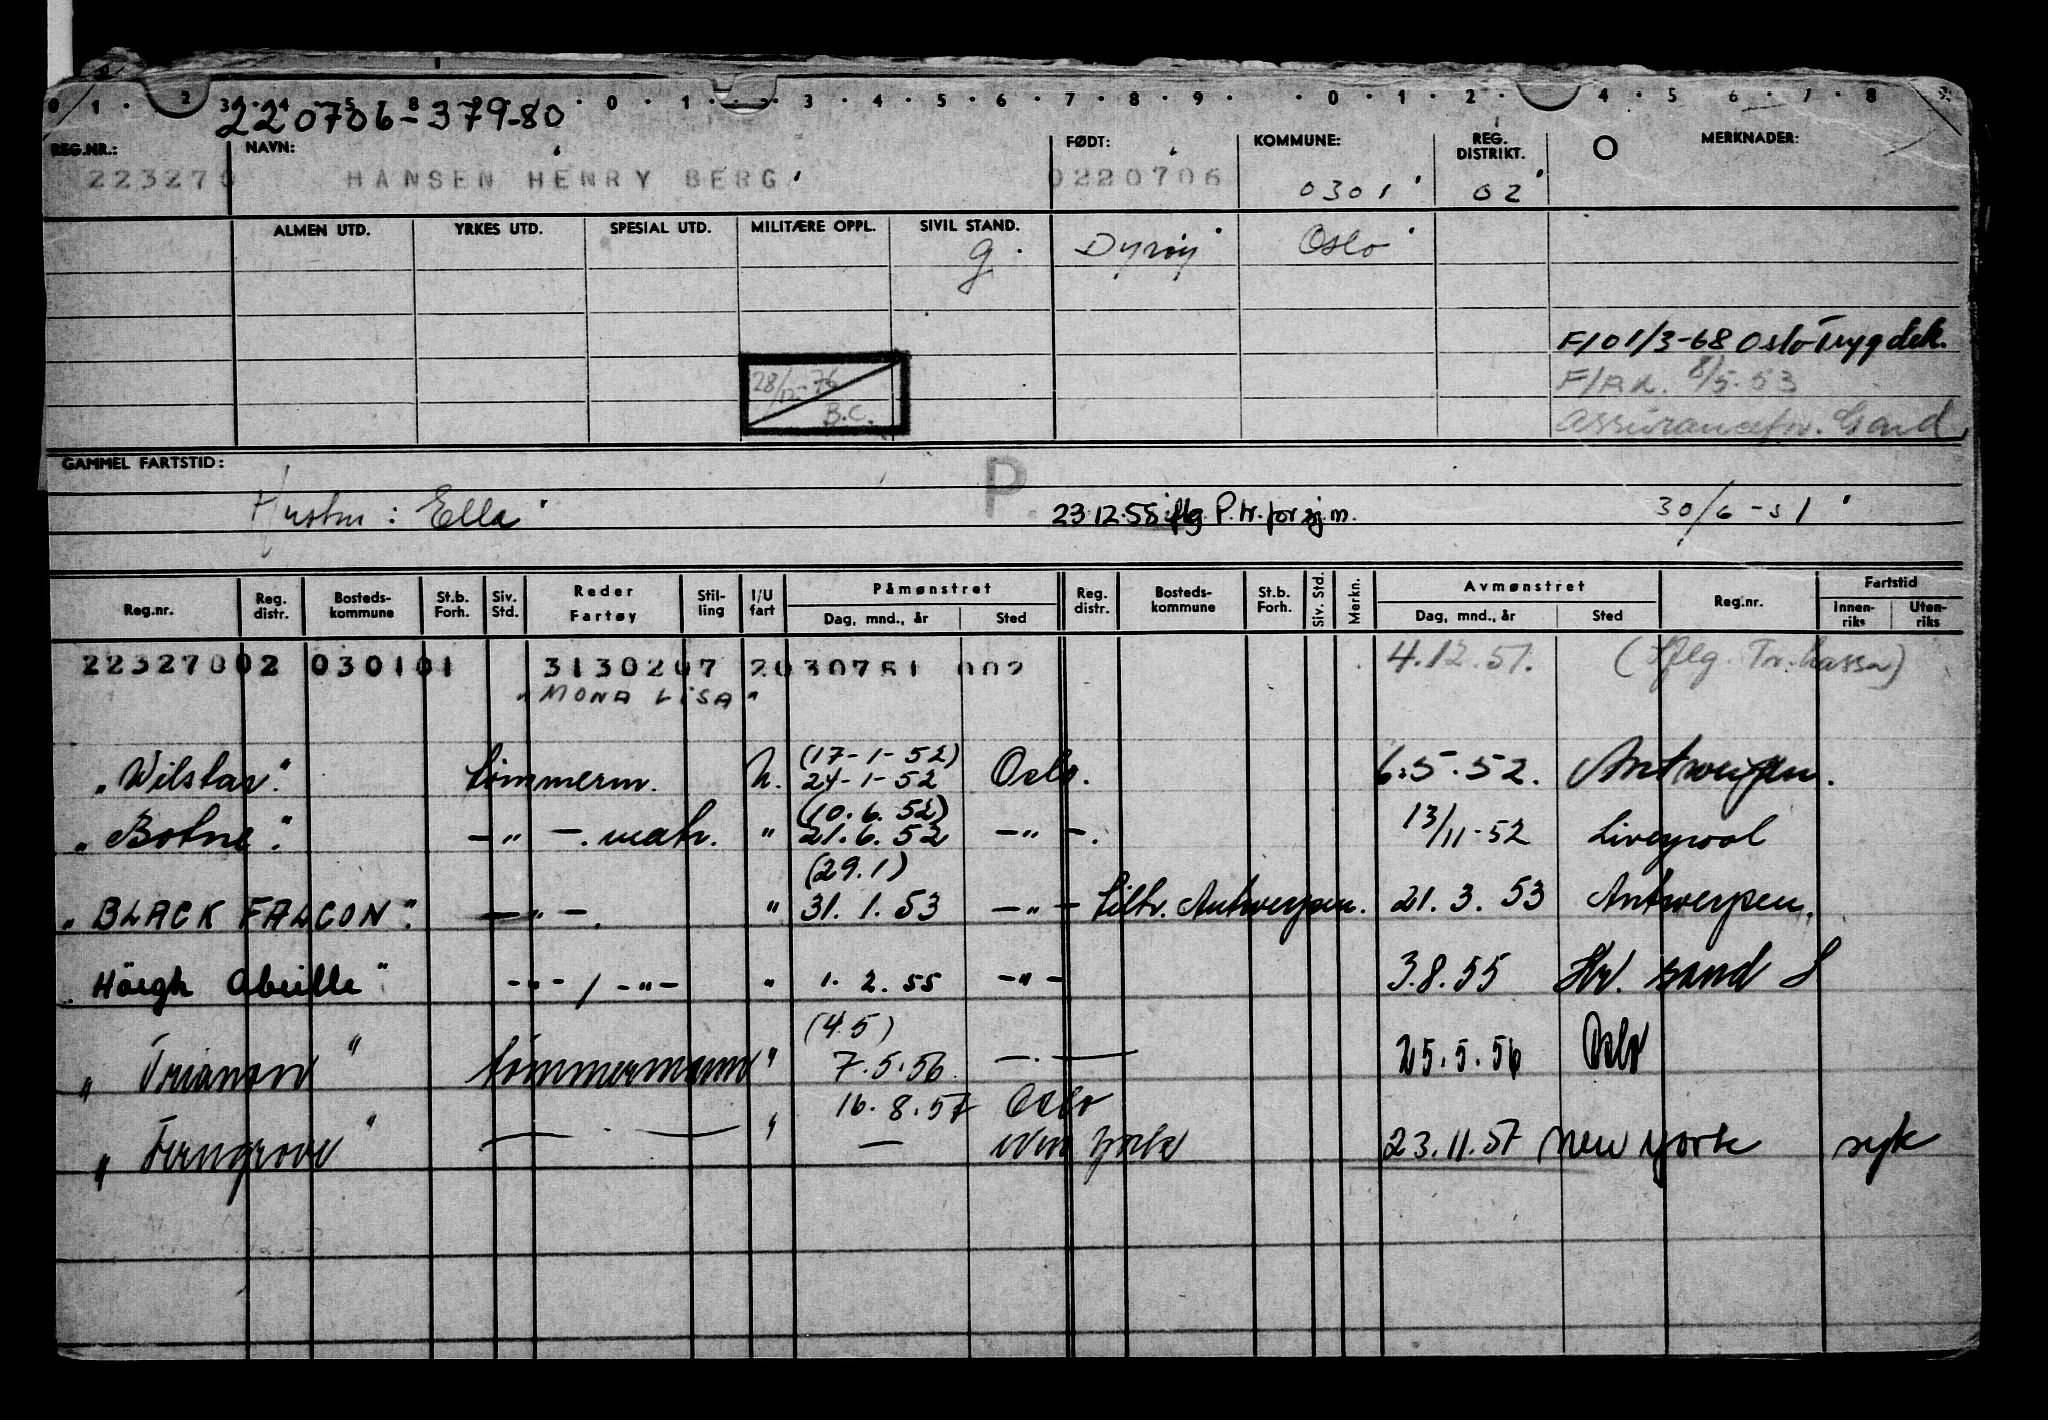 0 1 2 3 4 5 8 9 0 1 2 3 4 5 6 7 8 9 0 1 2 4 5 6 7 8 9
220706-379-80
REG.NR.: NAVN: FØDT: KOMMUNE: REG. DISTRIKT. MERKNADER:
223270 HANSEN HENRY BERG 0220706 0301 02
ALMEN UTD. YRKES UTD. SPESIAL UTD. MILITÆRE OPPL. SIVIL STAND.
g Dyrøy Oslo
F/O 1/3-68 Oslo Trygdek.
28/12-76 F/A.L. 8/5.53
B.C. Assuransef. Gard
GAMMEL FARTSTID: P
Hustru: Ella 23.12.58 iflg. P.tr. for sj.m. 30/6-51
Reg.nr. Reg. distr. Bosteds-kommune St.b. Forh. Siv. Std. Reder Fartøy Stil-ling I/U fart Påmønstret Dag, mnd., år Sted Reg. distr. Bosteds-kommune St.b. Forh. Siv. Std. Merkn. Avmønstret Dag, mnd., år Sted Reg.nr. Fartstid Innen-riks Uten-riks
22327002 030101 3130207 2030751 002 4.12.51. (Iflg. Tr.kassa)
"MONA LISA"
(17-1-52)
"Wilstar". tømmerm. U. 24-1-52 Oslo. 6.5.52. Antwerpen.
(10.6.52)
"Botne". -"- matr. " 21.6.52 -"-. 13/11-52 Liverpool
(29.1)
"BLACK FALCON". -"-. " 31.1.53 -"- tiltr. Antwerpen. 21.3.53 Antwerpen.
"Höegh Abeille" -"-/-"- " 1.2.55 -"- 3.8.55 Kr. sand S
(4.5)
"Trianon" tømmermann " 7.5.56 -.- 25.5.56 Oslo
16.8.57 Oslo
"Ferngrove" -.- " - New York 23.11.57 New York syk